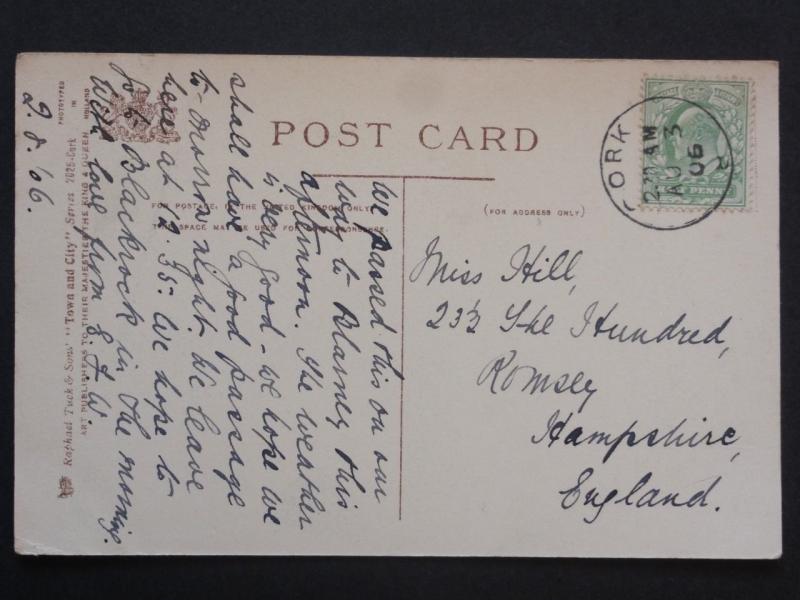 POST CARD
FOR POSTAGE IN THE UNITED KINGDOM ONLY
THIS SPACE MAY BE USED FOR CORRESPONDENCE
(FOR ADDRESS ONLY)
We passed this on our
way to Blarney this
afternoon. The weather
is very good - we hope we
shall have a good passage
to-morrow night. We leave
here at 12.35. We hope to
go to Blackrock in the morning.
With love from
2.8.'06.
Miss Hill,
23½ The Hundred,
Romsey
Hampshire,
England.
CORK
2.30 AM
AU 3
06
PENNY
Raphael Tuck & Sons' "Town and City" Series 7025 - Cork
ART PUBLISHERS TO THEIR MAJESTIES THE KING & QUEEN
PHOTOTYPED
IN
HOLLAND